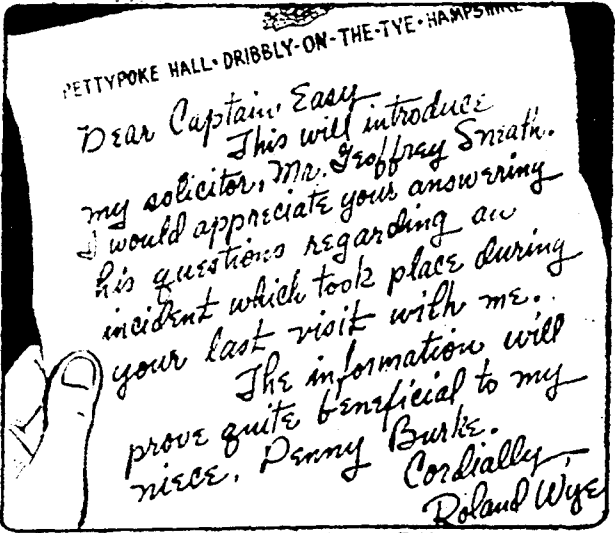 PETTYPOKE HALL • DRIBBLY-ON-THE-TYE • HAMPSHIRE
Dear Captain Easy
This will introduce
my solicitor, Mr. Geoffrey Sneath.
I would appreciate your answering
his questions regarding an
incident which took place during
your last visit with me.
The information will
prove quite beneficial to my
niece, Penny Burke.
Cordially,
Roland Wye